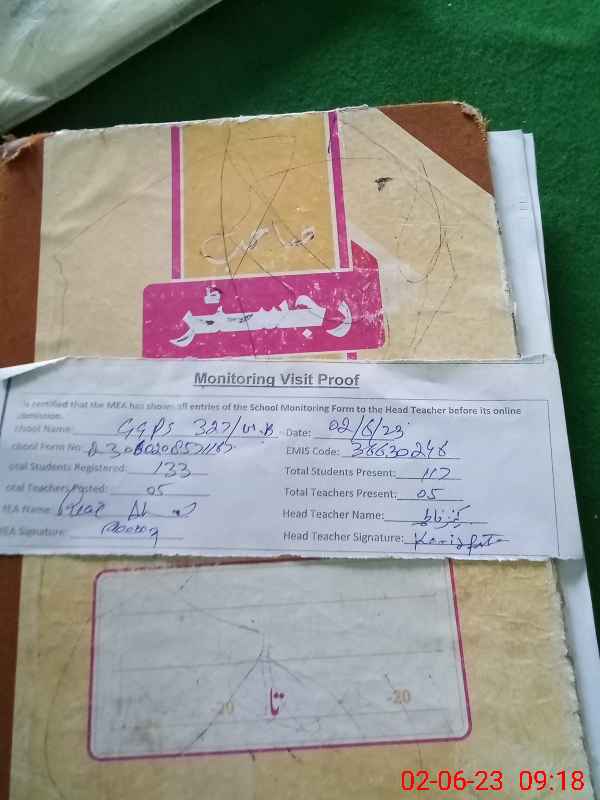 رجسٹر
Monitoring Visit Proof
is certified that the MEA has shown all entries of the School Monitoring Form to the Head Teacher before its online
mission.
chool Name: GGPS 327/W.B Date: 02/6/23
chool Form No: EMIS Code: 36630248
otal Students Registered: 133 Total Students Present: 117
otal Teachers Posted: 05 Total Teachers Present: 05
MEA Name: Head Teacher Name:
MEA Signature: Head Teacher Signature:
20 تا -20
02-06-23 09:18